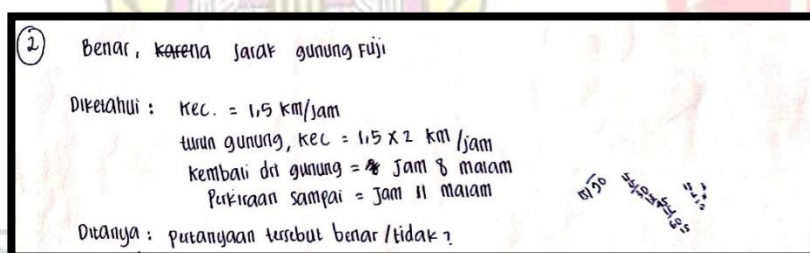 2 Benar, karena Jarak gunung Fuji
Diketahui : Kec. = 1,5 km/jam
turun gunung, kec = 1,5 x 2 km/jam
kembali dri gunung = Jam 8 malam
Perkiraan sampai = Jam 11 malam
Ditanya : pertanyaan tersebut benar/tidak ?